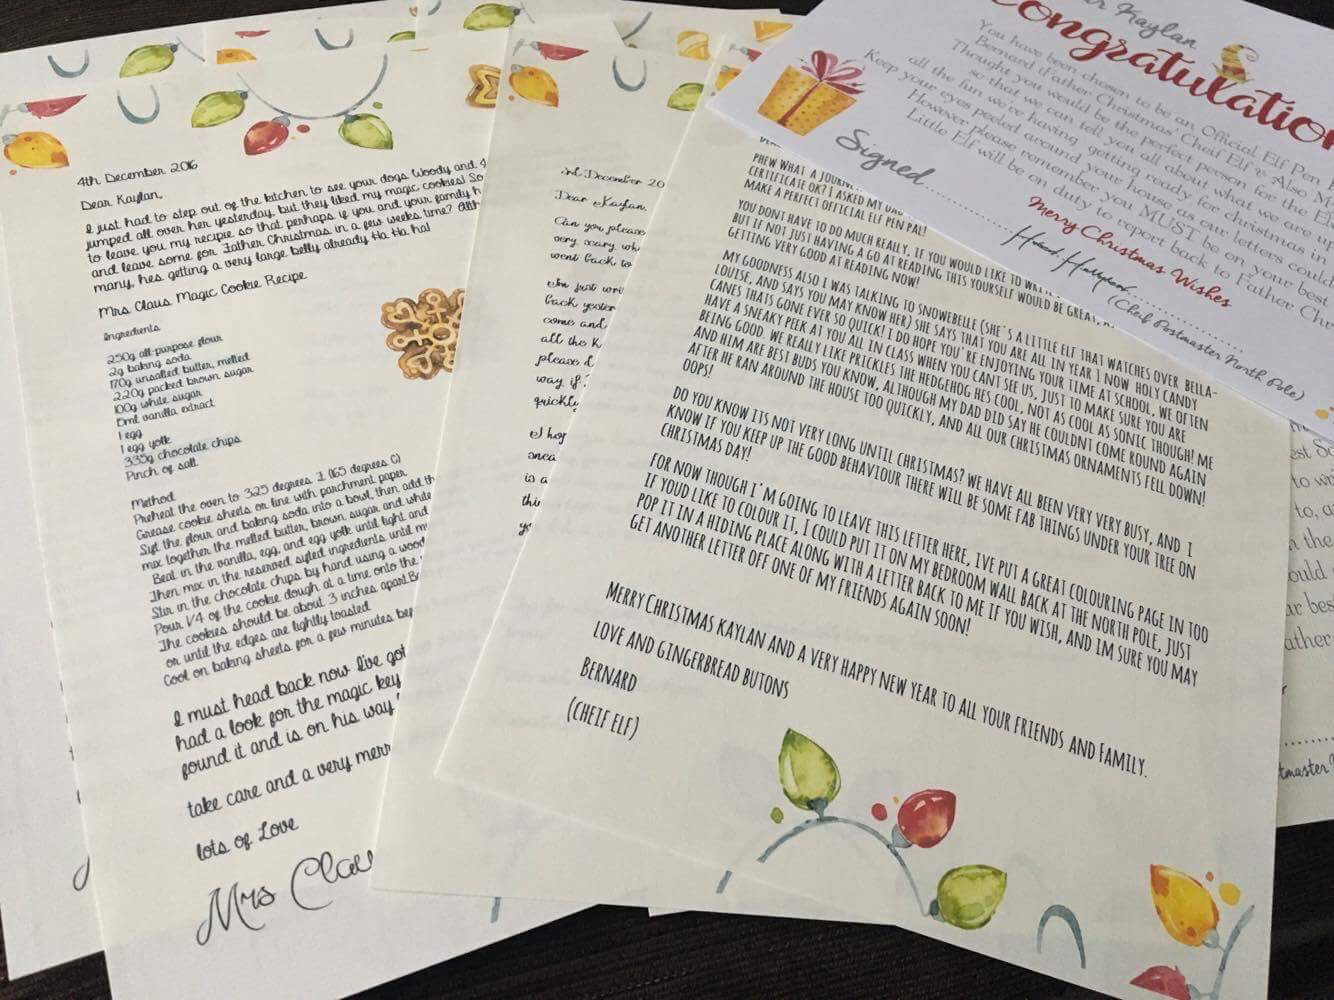 4th December 2016
Dear Kaylan,
I just had to step out of the kitchen to see your dogs Woody and
jumped all over her yesterday, but they liked my magic cookies! So
to leave you my recipie so that perhaps if you and your family
and leave some for Father Christmas in a few weeks time?
many, hes getting a very large belly already Ha Ha ha!
Mrs Claus Magic Cookie Recipe
Ingredients
250g all-purpose flour
2g baking soda
170g unsalted butter, melted
220g packed brown sugar
100g white sugar
15ml vanilla extract
1 egg
1 egg yolk
335g chocolate chips
Pinch of salt
Method
Preheat the oven to 325 degrees F (165 degrees C)
Grease cookie sheets or line with parchment paper
Sift the flour and baking soda into a bowl, then add the
mix together the melted butter, brown sugar and white
Beat in the vanilla, egg, and egg yolk until light and
Then mix in the reserved sifted ingredients until
Stir in the chocolate chips by hand using a
Pour 1/4 of the cookie dough at a time onto the
The cookies should be about 3 inches apart.
or until the edges are lightly toasted
Cool on baking sheets for a few minutes
I must head back now I've got
had a look for the magic key
found it and is on his way
take care and a very
lots of Love
Mrs
December 20
Dear Kaylan,
Can you please
very scary
went back to
just
back
come and
all the
please
way if
quickly
I
is a
PHEW WHAT A
CERTIFICATE OK? I ASKED MY DAD
MAKE A PERFECT OFFICIAL ELF PEN PAL!
YOU DONT HAVE TO DO MUCH REALLY, IF YOU WOULD LIKE TO
BUT IF NOT JUST HAVING A GO AT READING THIS YOURSELF WOULD BE GREAT,
GETTING VERY GOOD AT READING NOW!
MY GOODNESS ALSO I WAS TALKING TO SNOWEBELLE (SHE'S A LITTLE ELF THAT WATCHES OVER BELLA-
LOUISE, AND SAYS YOU MAY KNOW HER) SHE SAYS THAT YOU ARE ALL IN YEAR 1 NOW HOLY CANDY
CANES THATS GONE EVER SO QUICK! I DO HOPE YOU'RE ENJOYING YOUR TIME AT SCHOOL, WE OFTEN
HAVE A SNEAKY PEEK AT YOU ALL IN CLASS WHEN YOU CANT SEE US, JUST TO MAKE SURE YOU ARE
BEING GOOD. WE REALLY LIKE PRICKLES THE HEDGEHOG HES COOL, NOT AS COOL AS SONIC THOUGH! ME
AND HIM ARE BEST BUDS YOU KNOW, ALTHOUGH MY DAD DID SAY HE COULDNT COME ROUND AGAIN
AFTER HE RAN AROUND THE HOUSE TOO QUICKLY, AND ALL OUR CHRISTMAS ORNAMENTS FELL DOWN!
OOPS!
DO YOU KNOW ITS NOT VERY LONG UNTIL CHRISTMAS? WE HAVE ALL BEEN VERY VERY BUSY, AND I
KNOW IF YOU KEEP UP THE GOOD BEHAVIOUR THERE WILL BE SOME FAB THINGS UNDER YOUR TREE ON
CHRISTMAS DAY!
FOR NOW THOUGH I'M GOING TO LEAVE THIS LETTER HERE, IVE PUT A GREAT COLOURING PAGE IN TOO
IF YOUD LIKE TO COLOUR IT, I COULD PUT IT ON MY BEDROOM WALL BACK AT THE NORTH POLE, JUST
POP IT IN A HIDING PLACE ALONG WITH A LETTER BACK TO ME IF YOU WISH, AND IM SURE YOU MAY
GET ANOTHER LETTER OFF ONE OF MY FRIENDS AGAIN SOON!
MERRY CHRISTMAS KAYLAN AND A VERY HAPPY NEW YEAR TO ALL YOUR FRIENDS AND FAMILY.
LOVE AND GINGERBREAD BUTONS
BERNARD
(CHEIF ELF)
Kaylan
Congratulation
You have been chosen to be an Official Elf Pen
Bernard (Father Christmas' Cheif Elf & Also
Thought you would be the perfect person for the
so that we can tell you all about what we are up
all the fun we're having getting ready for christmas in
Keep your eyes peeled around your house as our letters could
However please remember you MUST be on your best
Little Elf will be on duty to report back to Father
Signed
Merry Christmas Wishes
(Cheif Postmaster North Pole)